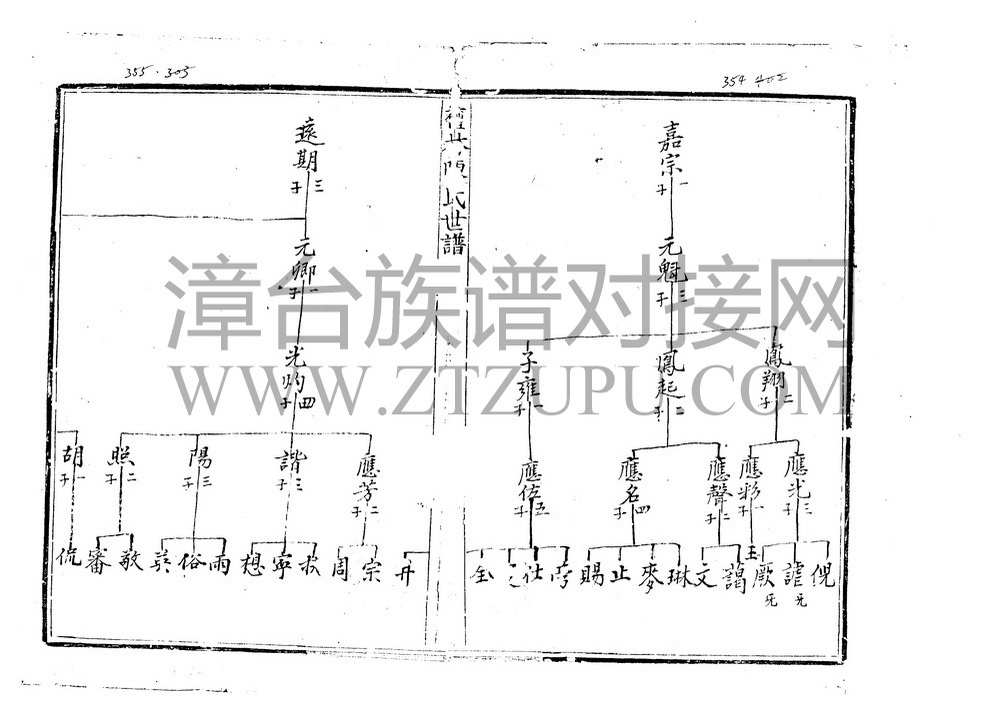 355·305
354 402
嘉宗
一子
元魁
三子
鳳翔
二子
鳳起
二子
子雍
一子
應光
三子
應彩
一子
應聲
二子
應名
四子
應位
五子
倪
謔
兂
厥
玉
藹
文
琳
麥
止
賜
仕
全
氏世譜
遠期
三子
元卿
一子
光灼
四子
應芳
二子
諧
三子
陽
三子
照
二子
胡
一子
井
宗
周
寧
想
雨
俗
英
敬
審
侃
漳台族谱对接网
WWW.ZTZUPU.COM